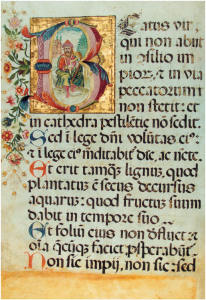 Beatus vir,
qui non abiit
in cōsilio im
pioꝝ, et in via
peccatorum
non stetit: et
in cathedra pestilētie nō sedit.
Sed ī lege dn̄i volūtas ei⁹:
et ī lege ei⁹ meditabit die, ac nocte.
Et erit tamqꝫ lignū, quod
plantatus ē secus decursus
aquarus: quod fructus suum
dabit in tempore suo
Et foliū eius non dfluet: et
oīa q̄cūqꝫ faciet psperabūt.
Non sic impij, non sic: sed